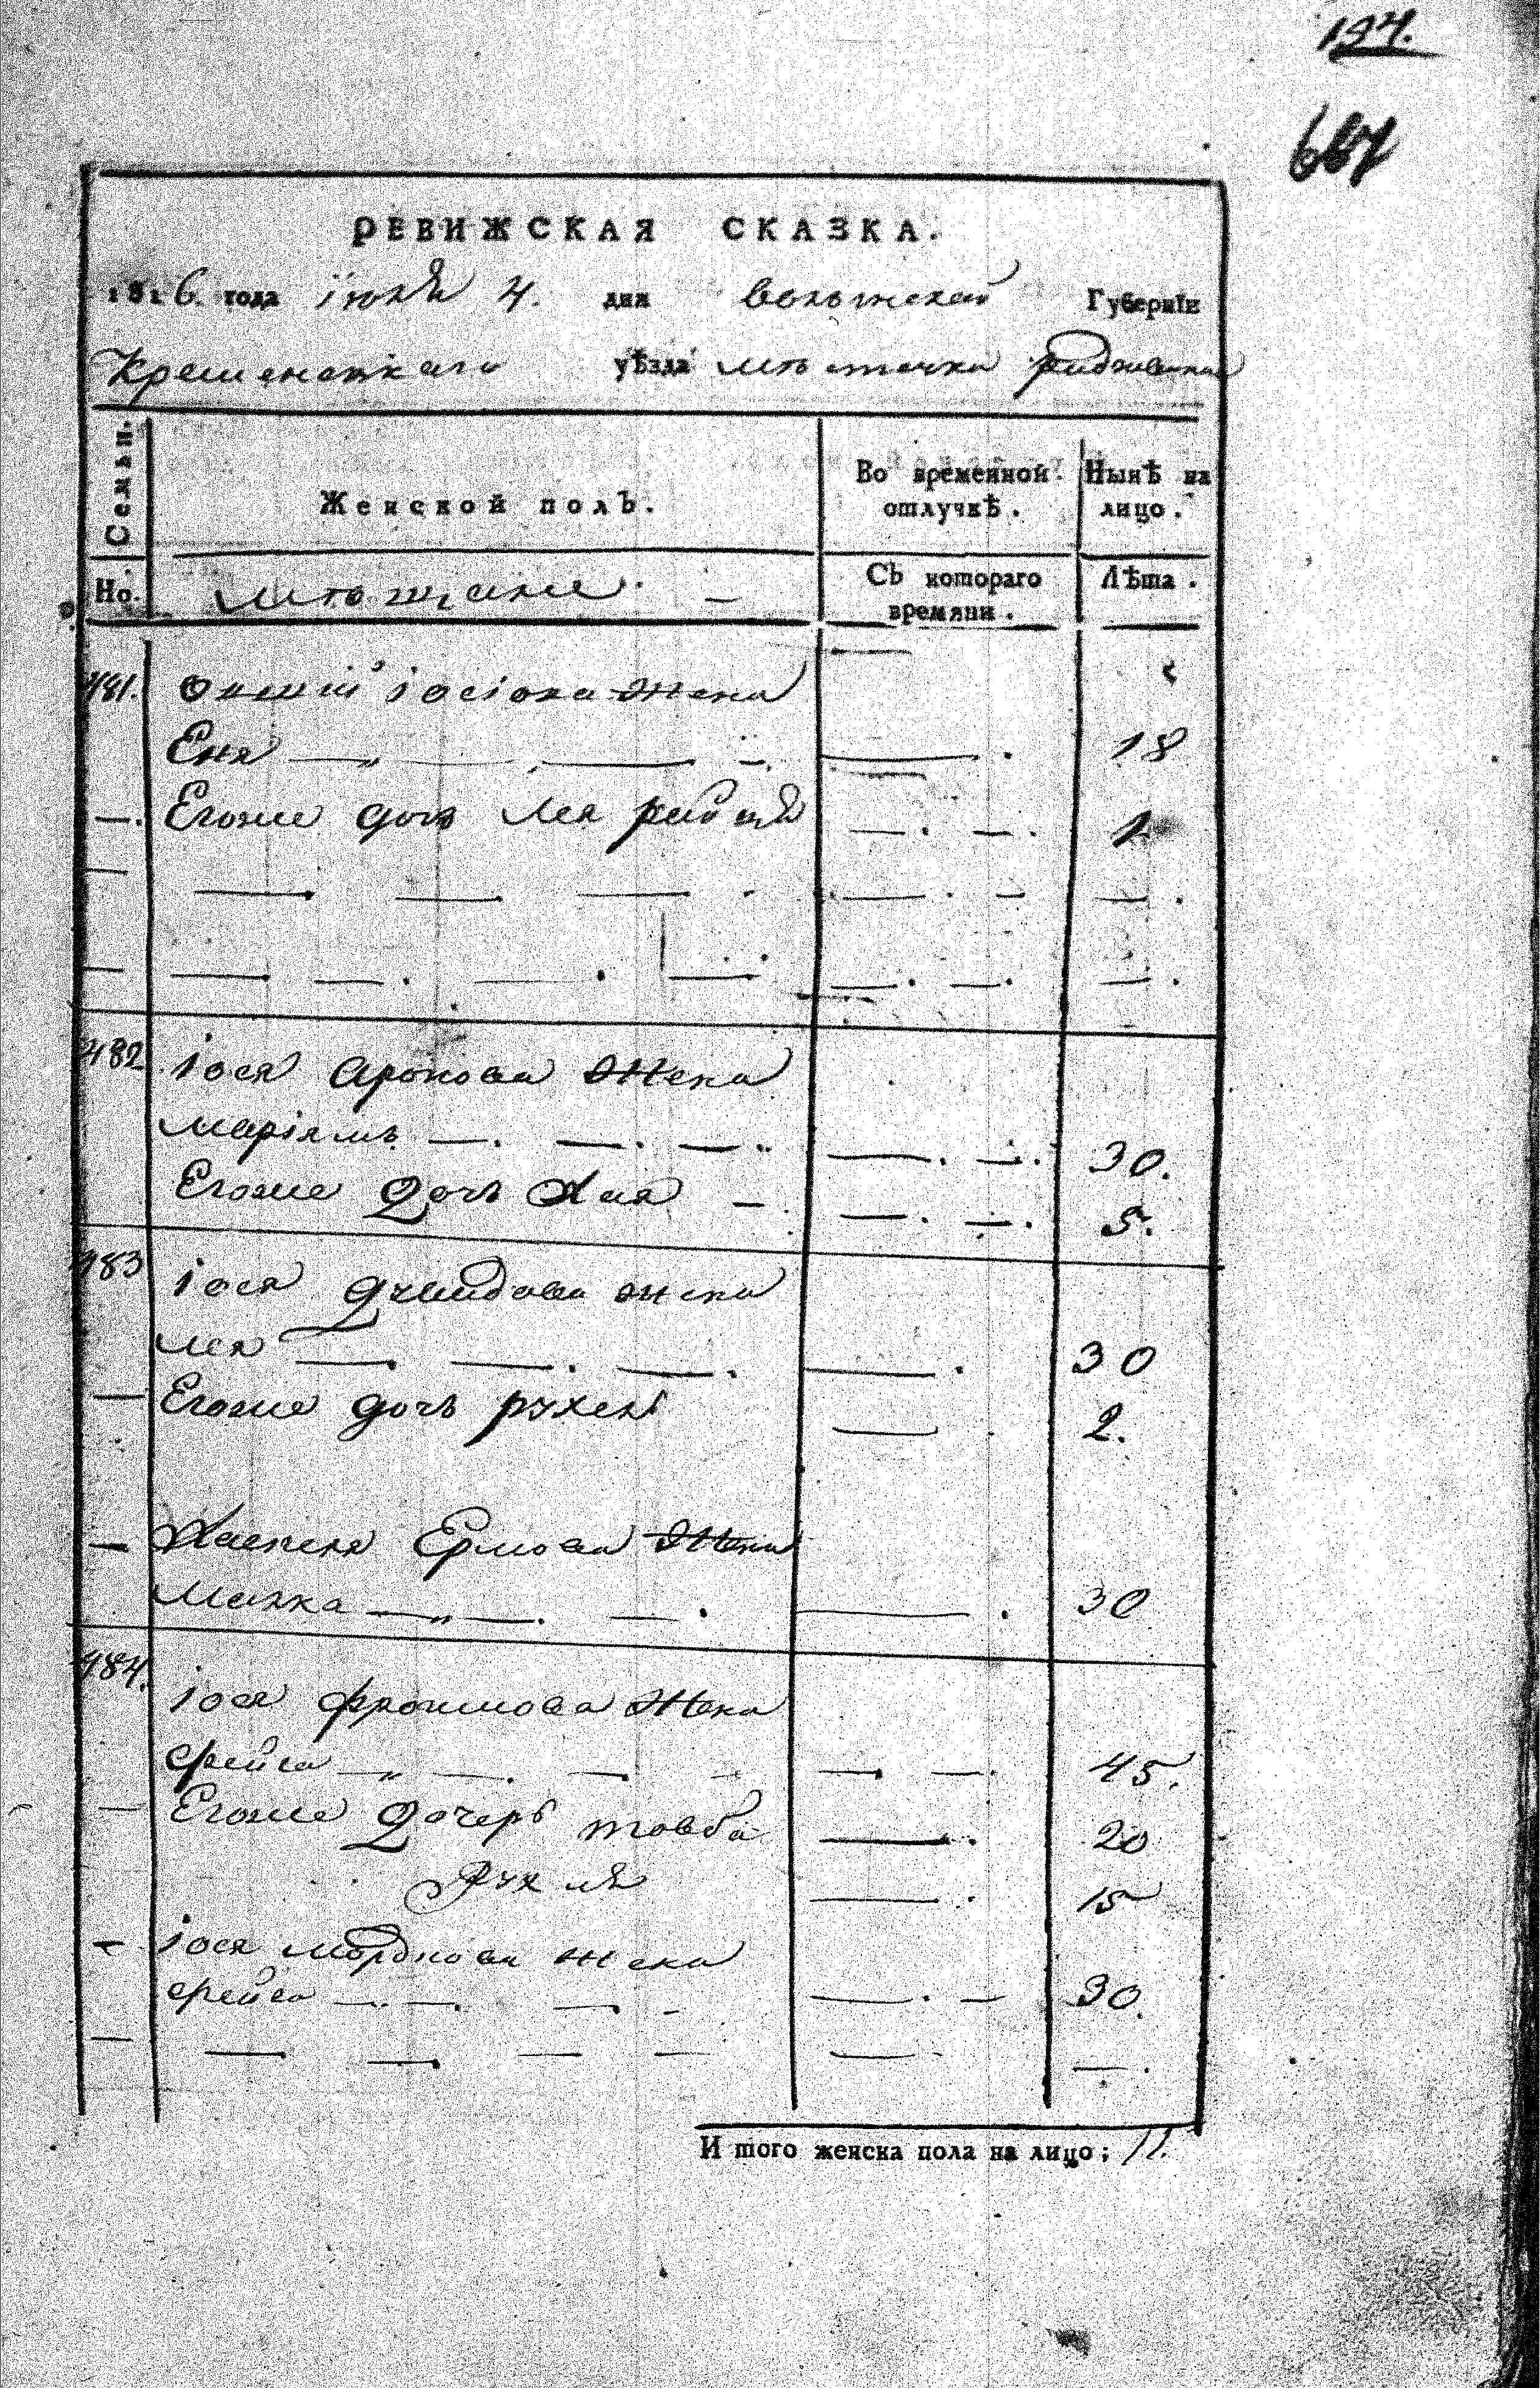 194.
667
РЕВИЖСКАЯ СКАЗКА.
1816. года іюля 4. дня волынской Губерніи
Кременецкаго уѣзда мѣстечка Радзивилова
Семьи. Женской полъ. Во временной отлучкѣ. Нынѣ на лицо.
Но. мѣщане. — Съ котораго времяни. Лѣта.
481. іосіова жена
Еня — 18
—. Егоже дочь Лея — 1
482 іося Аронова жена
маріямъ — 30.
Егоже дочь Хая — 5.
483 іося жена
лея — 30
— Егоже дочь рухель — 2.
— Ермова Жена
Малка — 30
484. іося фроимова Жена
фейга — 45.
— Егоже Дочерь товба — 20
Рухля — 15
— іося мордкова жена
фейга — 30.
И того женска пола на лицо; 11.